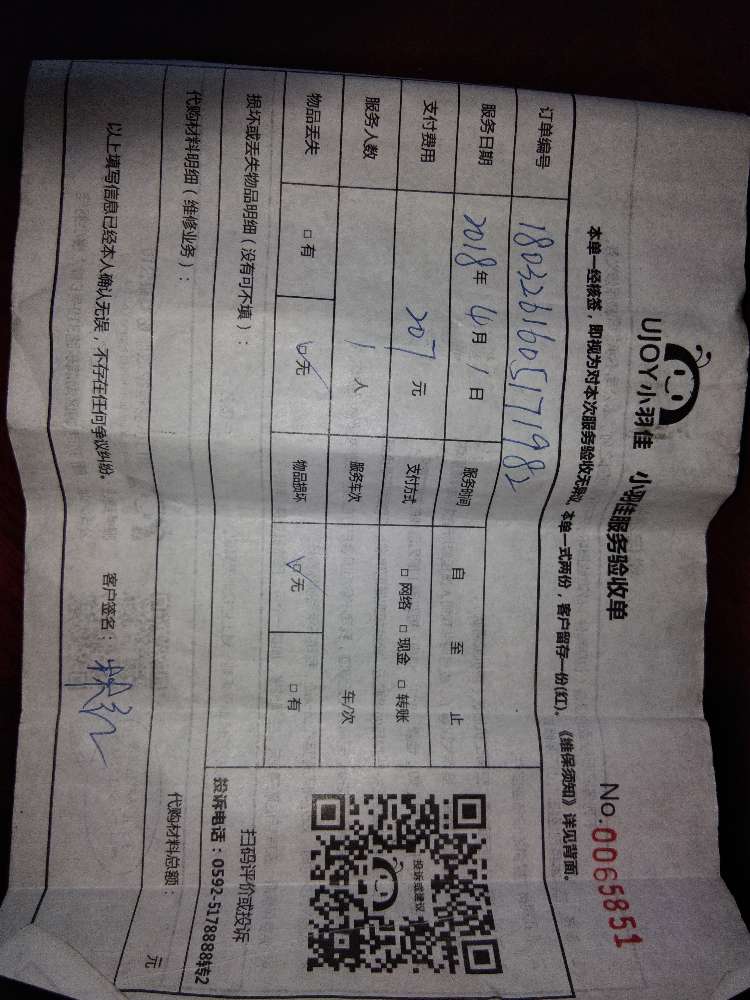 UJOY小羽佳 小羽佳服务验收单
No.0065851
本单一经缴签，即视为对本次服务验收无异议。本单一式两份，客户留存一份(红)。《维保须知》详见背面。
订单编号 180326160517198
服务日期 2018年4月1日 服务时间 自 至 止
支付费用 207元 支付方式 □网络 □现金 □转账
服务人数 1人 服务车次 车/次
物品丢失 □有 ☑无 物品损坏 ☑无 □有
投诉或建议
扫码评价或投诉
投诉电话：0592-5178888转2
损坏或丢失物品明细（没有可不填）：
代购材料明细（维修业务）： 代购材料总额： 元
以上填写信息已经本人确认无误，不存在任何争议纠纷。 客户签名：